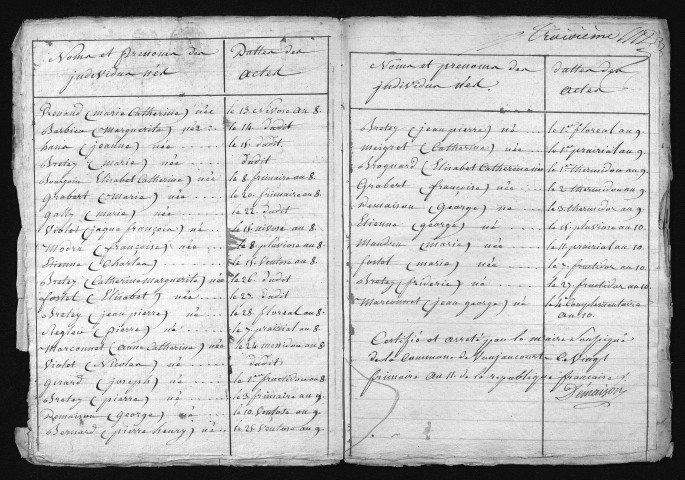 Noms et prenoms des
individus nés
Dattes des
actes
Renaud (marie Catherine) née le 13 Nivose an 8.
Barbier (Marguerite) née le 14. dudit
hana (jeanne) née le 15 dudit.
Bretey (marie) née dudit
Bourgoin Elisabet Catherine) née le 8 frimaire an 8.
Grabert (Marie) née le 20. frimaire an 8.
Gally (marie) née le 22. dudit
Violot (jaque françois) né le 15 nivose an 8.
(françoise) née le 8 pluviose an 8.
Etienne (Charles) le 15 Ventose an 8.
Bretey (Catherine marguerite) née le 26. dudit
Fostot (Elisabet) née le 27. dudit
Bretey (jean pierre) né le 28. floreal an 8.
(pierre) né le 7. prairial an 8.
Marconnet (anne Catherine) née le 24 messidor an 8.
Violot (Nicolas) né dudit
Girard (joseph) né le 1er fructidor an 8
Bretey (pierre) né le 3 frimaire an 9.
Demaison (George) né le 10. Ventose an 9.
Bernard (pierre henry) né le 25 Ventose an 9.
Troisième
Noms et prenoms des
individus nés
dattes des
actes
Bretey (jean pierre) né le 1er floreal an 9.
meigret (Catherine) née le 1er prairial an 9.
Brognard (Elisabet Catherine) née le 1er thermidor an 9.
Grabert (françoise) née le 2 thermidor an 9.
Demaison (George) né le 2 thermidor an 9.
Etienne (george) né le 15. pluviose an 10.
Mandru (marie) née le 11 prairial an 10.
Fostot (marie) née le 7. fructidor an 10.
Bretey (frideric) né le 27. fructidor an 10.
Marconnet (jean george) né le 4e Complementaire
an 10.
Certifié et arreté par le maire Soussigné
de la Commune de Voujaucourt le Vingt
frimaire an 11. de la republique francaise.
Démaison